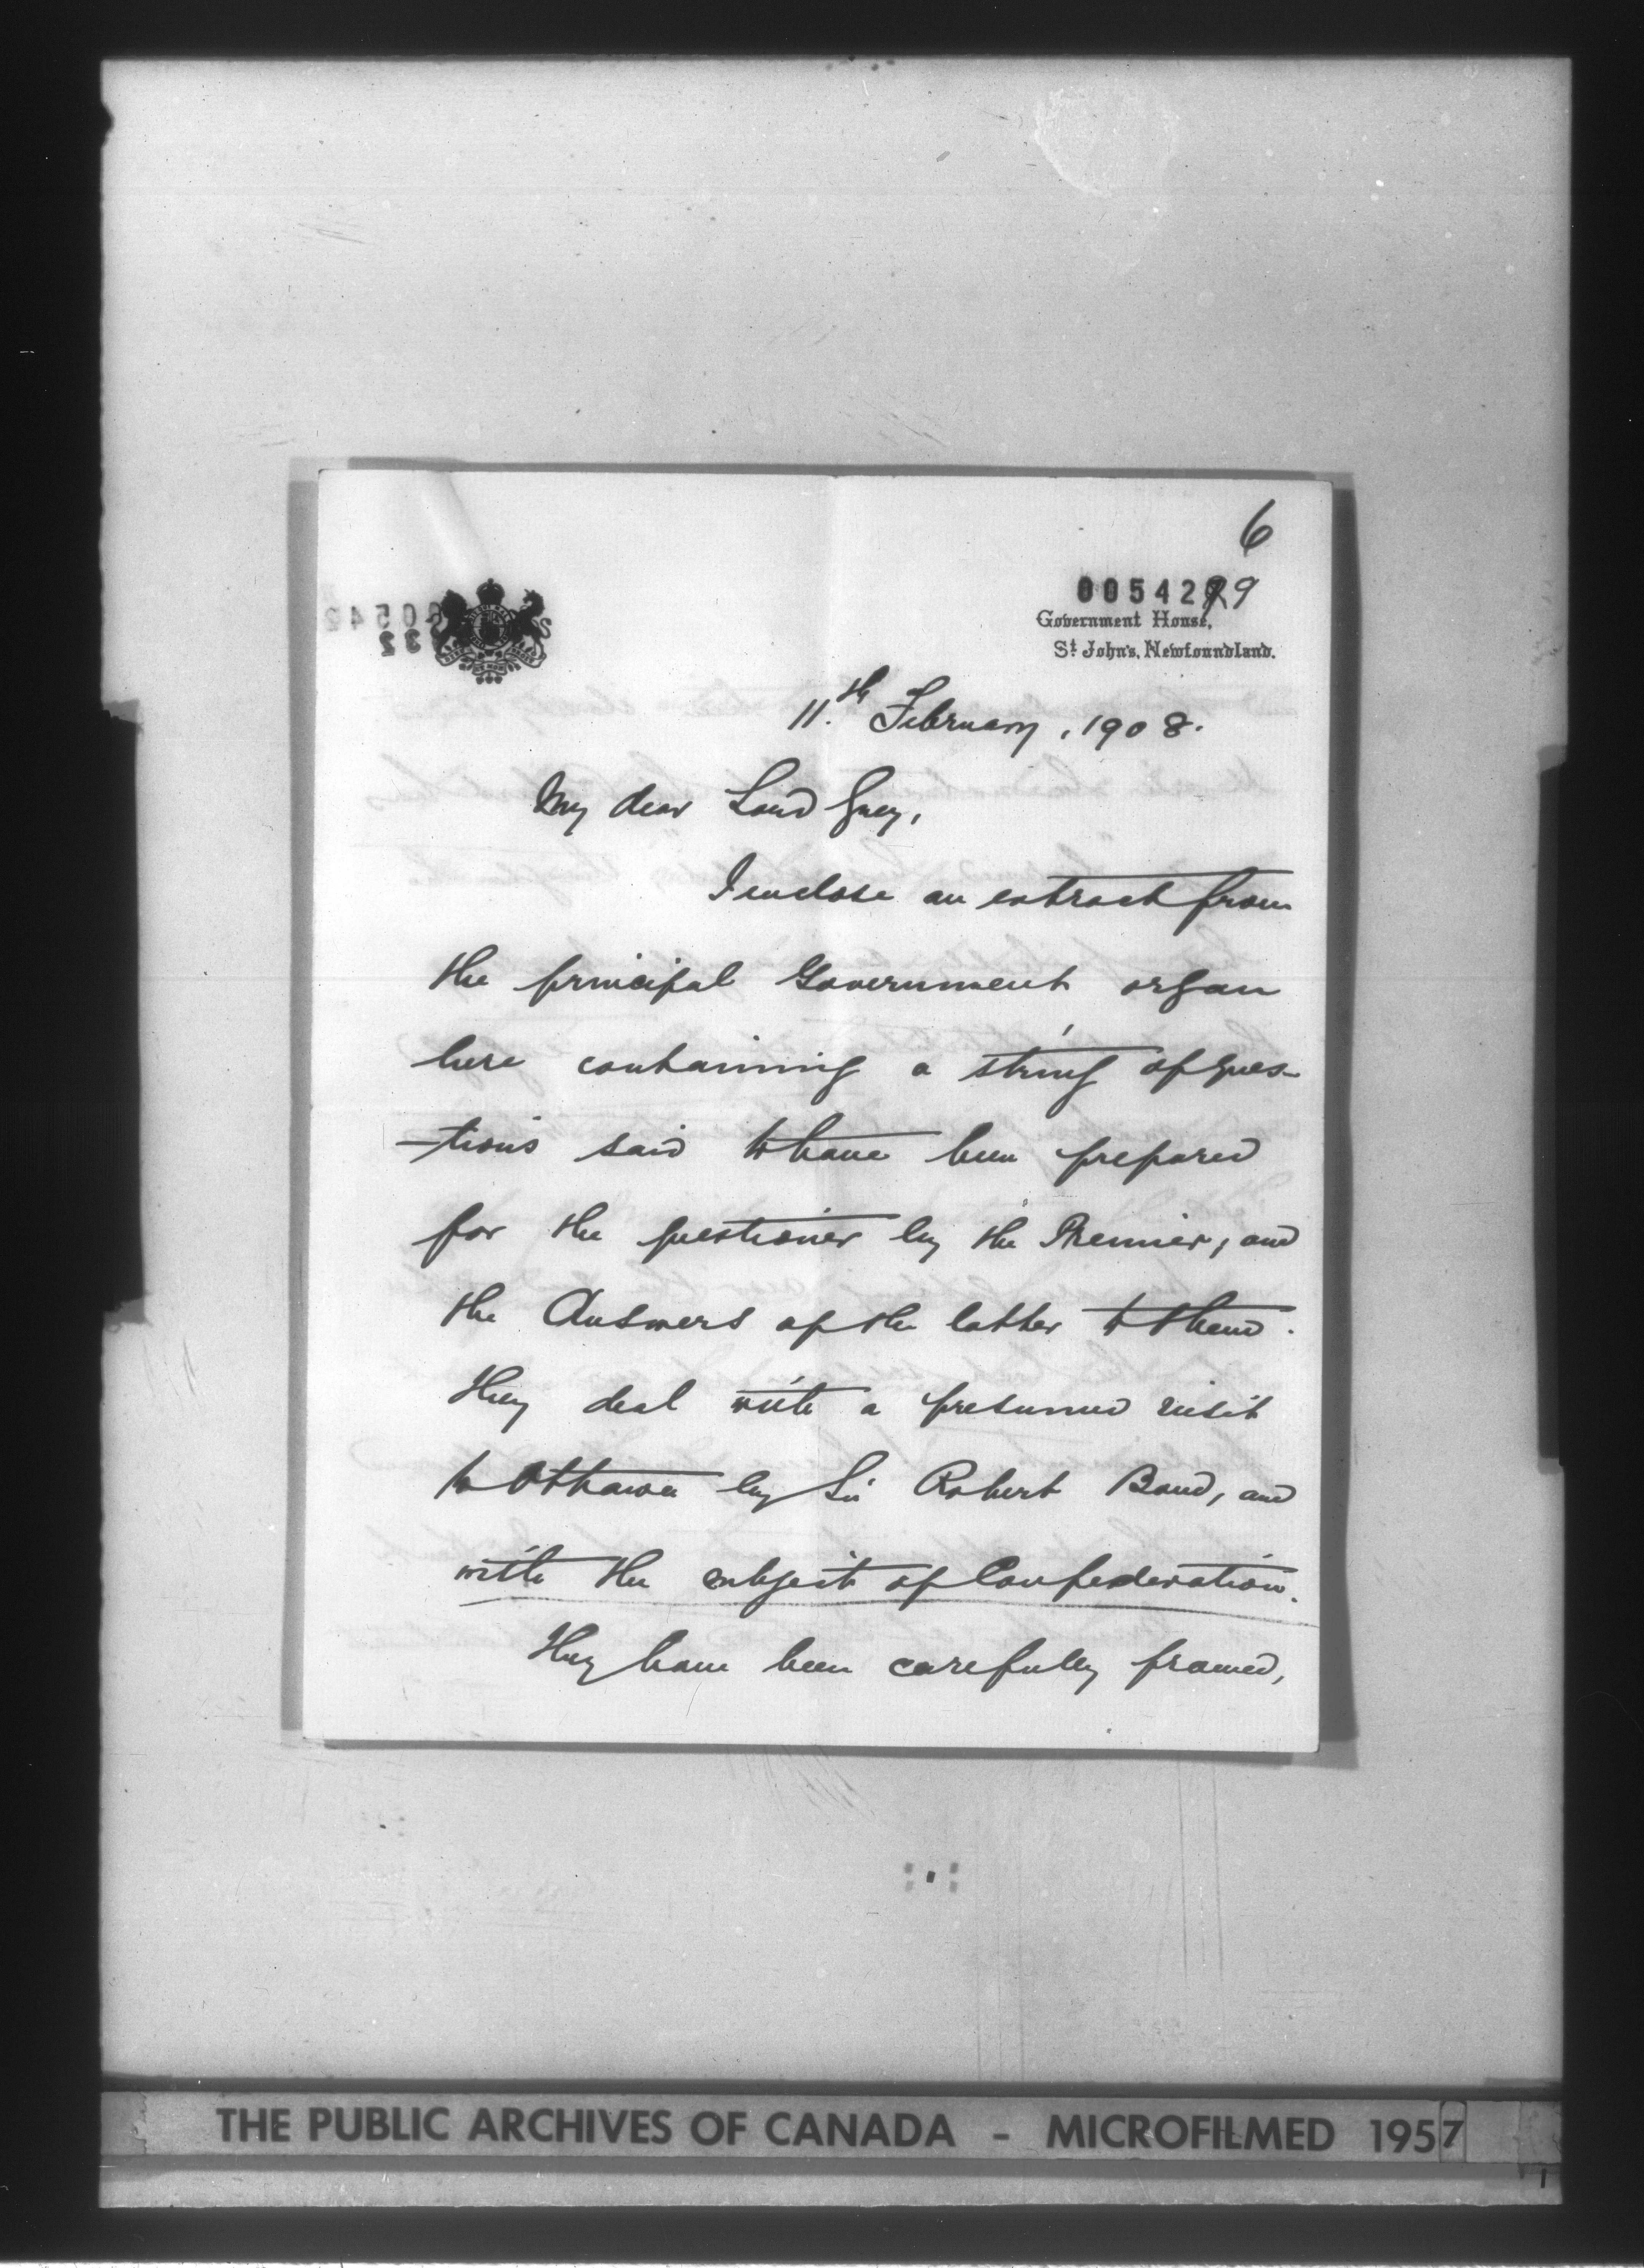 6
0054299
Government House,
St. John's, Newfoundland.
11.th February, 1908.
My dear Lord Grey,
I enclose an extract from
the principal Government organ
here containing a string of ques-
-tions said to have been prepared
for the questioner by the Premier, and
the Answers of the latter to them.
They deal with a presumed visit
to Ottawa by Sir Robert Bond, and
with the subject of Confederation.
They have been carefully framed,
THE PUBLIC ARCHIVES OF CANADA - MICROFILMED 1957
1